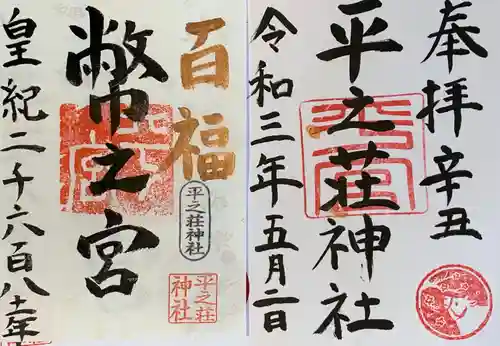 奉拝 辛丑
平之荘神社
令和三年五月二日
百福
平之荘神社
平之荘
神社
幣之宮
皇紀二千六百八十一年